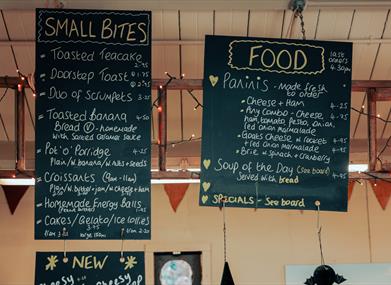 SMALL BITES
Toasted Teacake 2.75
Doorstep Toast
Duo of Scrumpets 3.50
Toasted banana 4.50
Bread Ⓥ - homemade
with Salted Caramel Sauce
Pot 'o' Porridge
Plain / w banana / w nuts + seeds
Croissants (9am - 11am)
Plain / w butter + jam / w cheese + ham
Homemade Energy Balls
Cakes / Gelato / ice lollies
NEW
FOOD
last orders 4.30pm
Paninis - Made fresh
to order
Cheese + Ham 4.25
Any Combo - Cheese,
ham, tomato, pesto, onion,
red onion marmalade
Goats Cheese w rocket
+ red onion marmalade
Brie w Spinach + cranberry
Soup of the Day (see board)
Served with bread
SPECIALS - See board